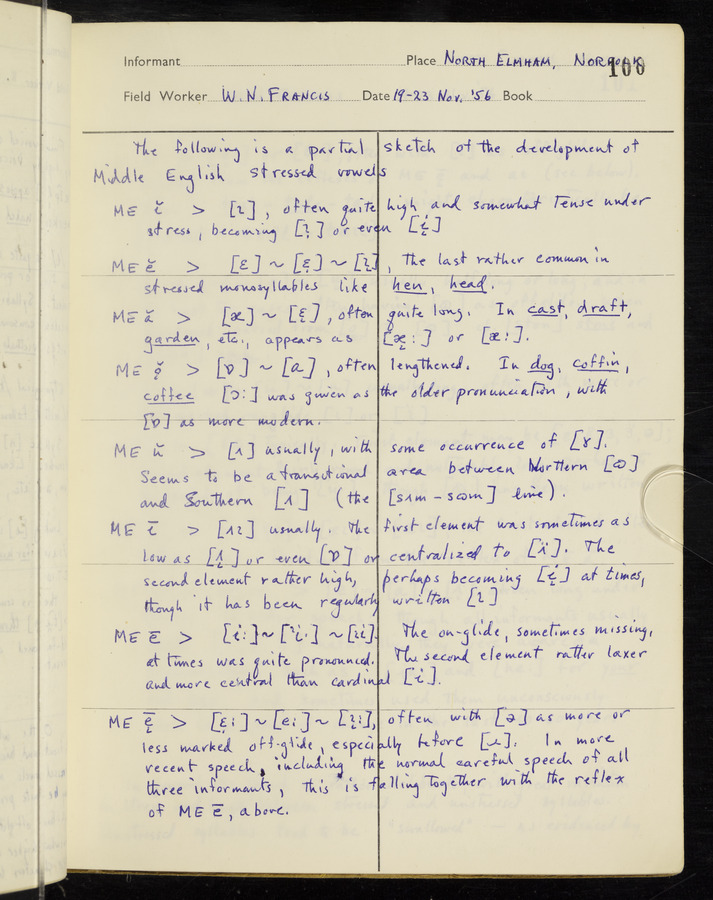 Informant Place NORTH ELMHAM, NORFOLK 100
Field Worker W. N. FRANCIS Date 19-23 Nov. '56 Book
The following is a partial sketch of the development of
Middle English stressed vowels
ME ĭ > [ɩ], often quite high and somewhat tense under
stress, becoming [ɩ̣] or even [i̞]
ME ĕ > [ɛ] ~ [ɛ̣] ~ [ɩ], the last rather common in
stressed monosyllables like hen, head.
ME ă > [æ] ~ [ɛ̞], often quite long. In cast, draft,
garden, etc., appears as [æ̞:] or [æ:].
ME ǫ̆ > [ɒ] ~ [ɑ], often lengthened. In dog, coffin,
coffee [ɔ:] was given as the older pronunciation, with
[ɒ] as more modern.
ME ŭ > [ʌ] usually, with some occurrence of [ɤ].
Seems to be a transitional area between Northern [ɷ]
and Southern [ʌ] (the [sʌm - sɷm] line).
ME ī > [ʌɩ] usually. The first element was sometimes as
low as [ʌ̞] or even [ɒ] or centralized to [ʌ̈]. The
second element rather high, perhaps becoming [i̞] at times,
though it has been regularly written [ɩ]
ME ē > [i:] ~ [ɩi·] ~ [ɩi]. The on-glide, sometimes missing,
at times was quite pronounced. The second element rather laxer
and more central than cardinal [i].
ME ę̄ > [ɛ̣:] ~ [e:] ~ [ɩ:], often with [ə] as more or
less marked off-glide, especially before [ɹ]. In more
recent speech, including the normal careful speech of all
three informants, this is falling together with the reflex
of ME ē, above.